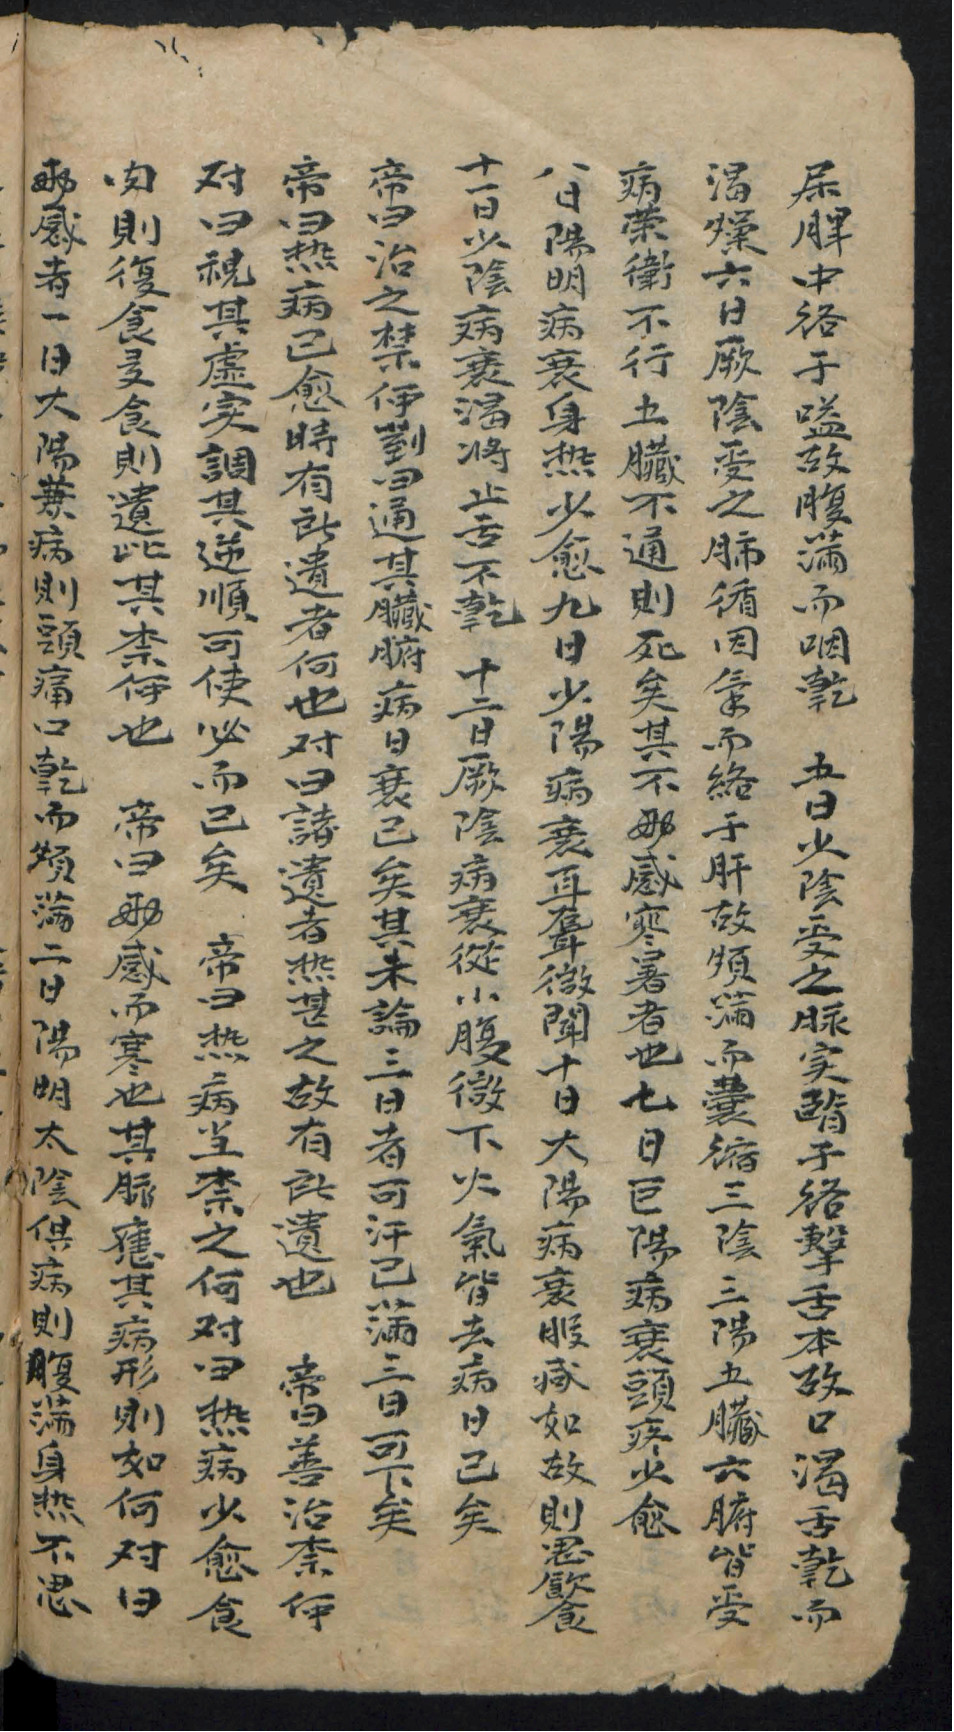 尿脾中络于嗌故腹滿而咽乾　五日少陰受之脉实踏子络擊舌本故口渴舌乾而
渴燥六日厥陰受之肺循因氣而絡于肝故煩滿而囊縮三陰三陽五臟六腑皆受
病荣衛不行五臟不通則死矣其不両感寒暑者也七日巨陽病衰頭疼少愈
八日陽明病衰身热少愈九日少陽病衰耳聋微聞十日大陽病衰腹减如故則思飲食
十一日少陰病衰渴将止舌不乾　十二日厥陰病衰從小腹微下火氣皆去病日已矣
帝曰治之禁何對曰通其臟腑病日衰已矣其未論三日者可汗已滿三日可下矣
帝曰热病已愈時有所遺者何也对曰諸遺者热甚之故有所遺也　帝曰善治柰何
对曰視其虚实調其逆順可使必而已矣　帝曰热病当禁之何对曰热病少愈食
肉則復食多食則遺此其禁何也　帝曰両感而寒也其脈應其病形則如何对曰
両感者一日大陽兼病則頭痛口乾而煩滿二日陽明太陰俱病則腹滿身热不思